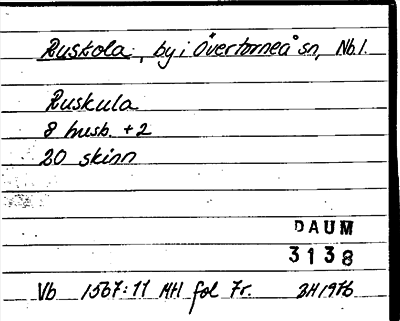 Ruskola, by i Övertorneå sn, Nb l.
Ruskula
8 husb. +2
20 skinn
DAUM
3138
Vb 1567:11 MH fol 7r. ZH 1976